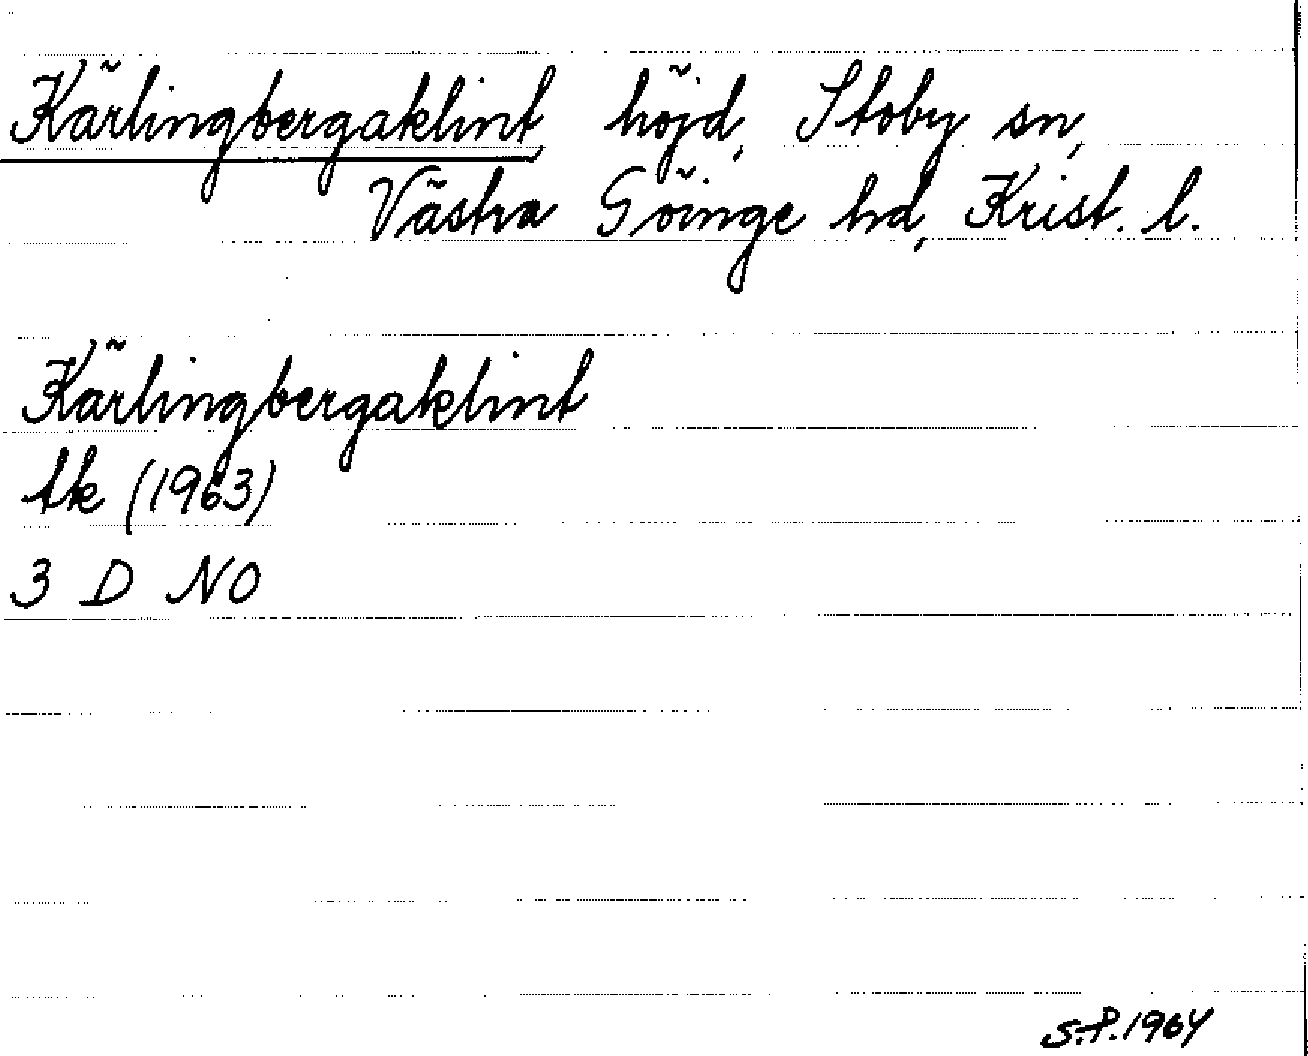 Kärlingbergaklint, höjd, Stoby sn,
Västra Göinge hd, Krist. l.
Kärlingbergaklint
tk (1963)
3 D NO
S.P. 1964